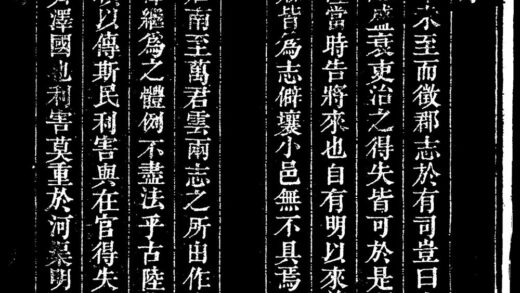 未至而徵郡志於有司豈曰
盛衰吏治之得失皆可於是
當時告將來也自有明以來
皆為志僻壤小邑無不具焉
南至萬君雲兩志之所由作
繼為之體例不盡法乎古陸
以傳斯民利害與在官得失
澤國也利害莫重於河渠明